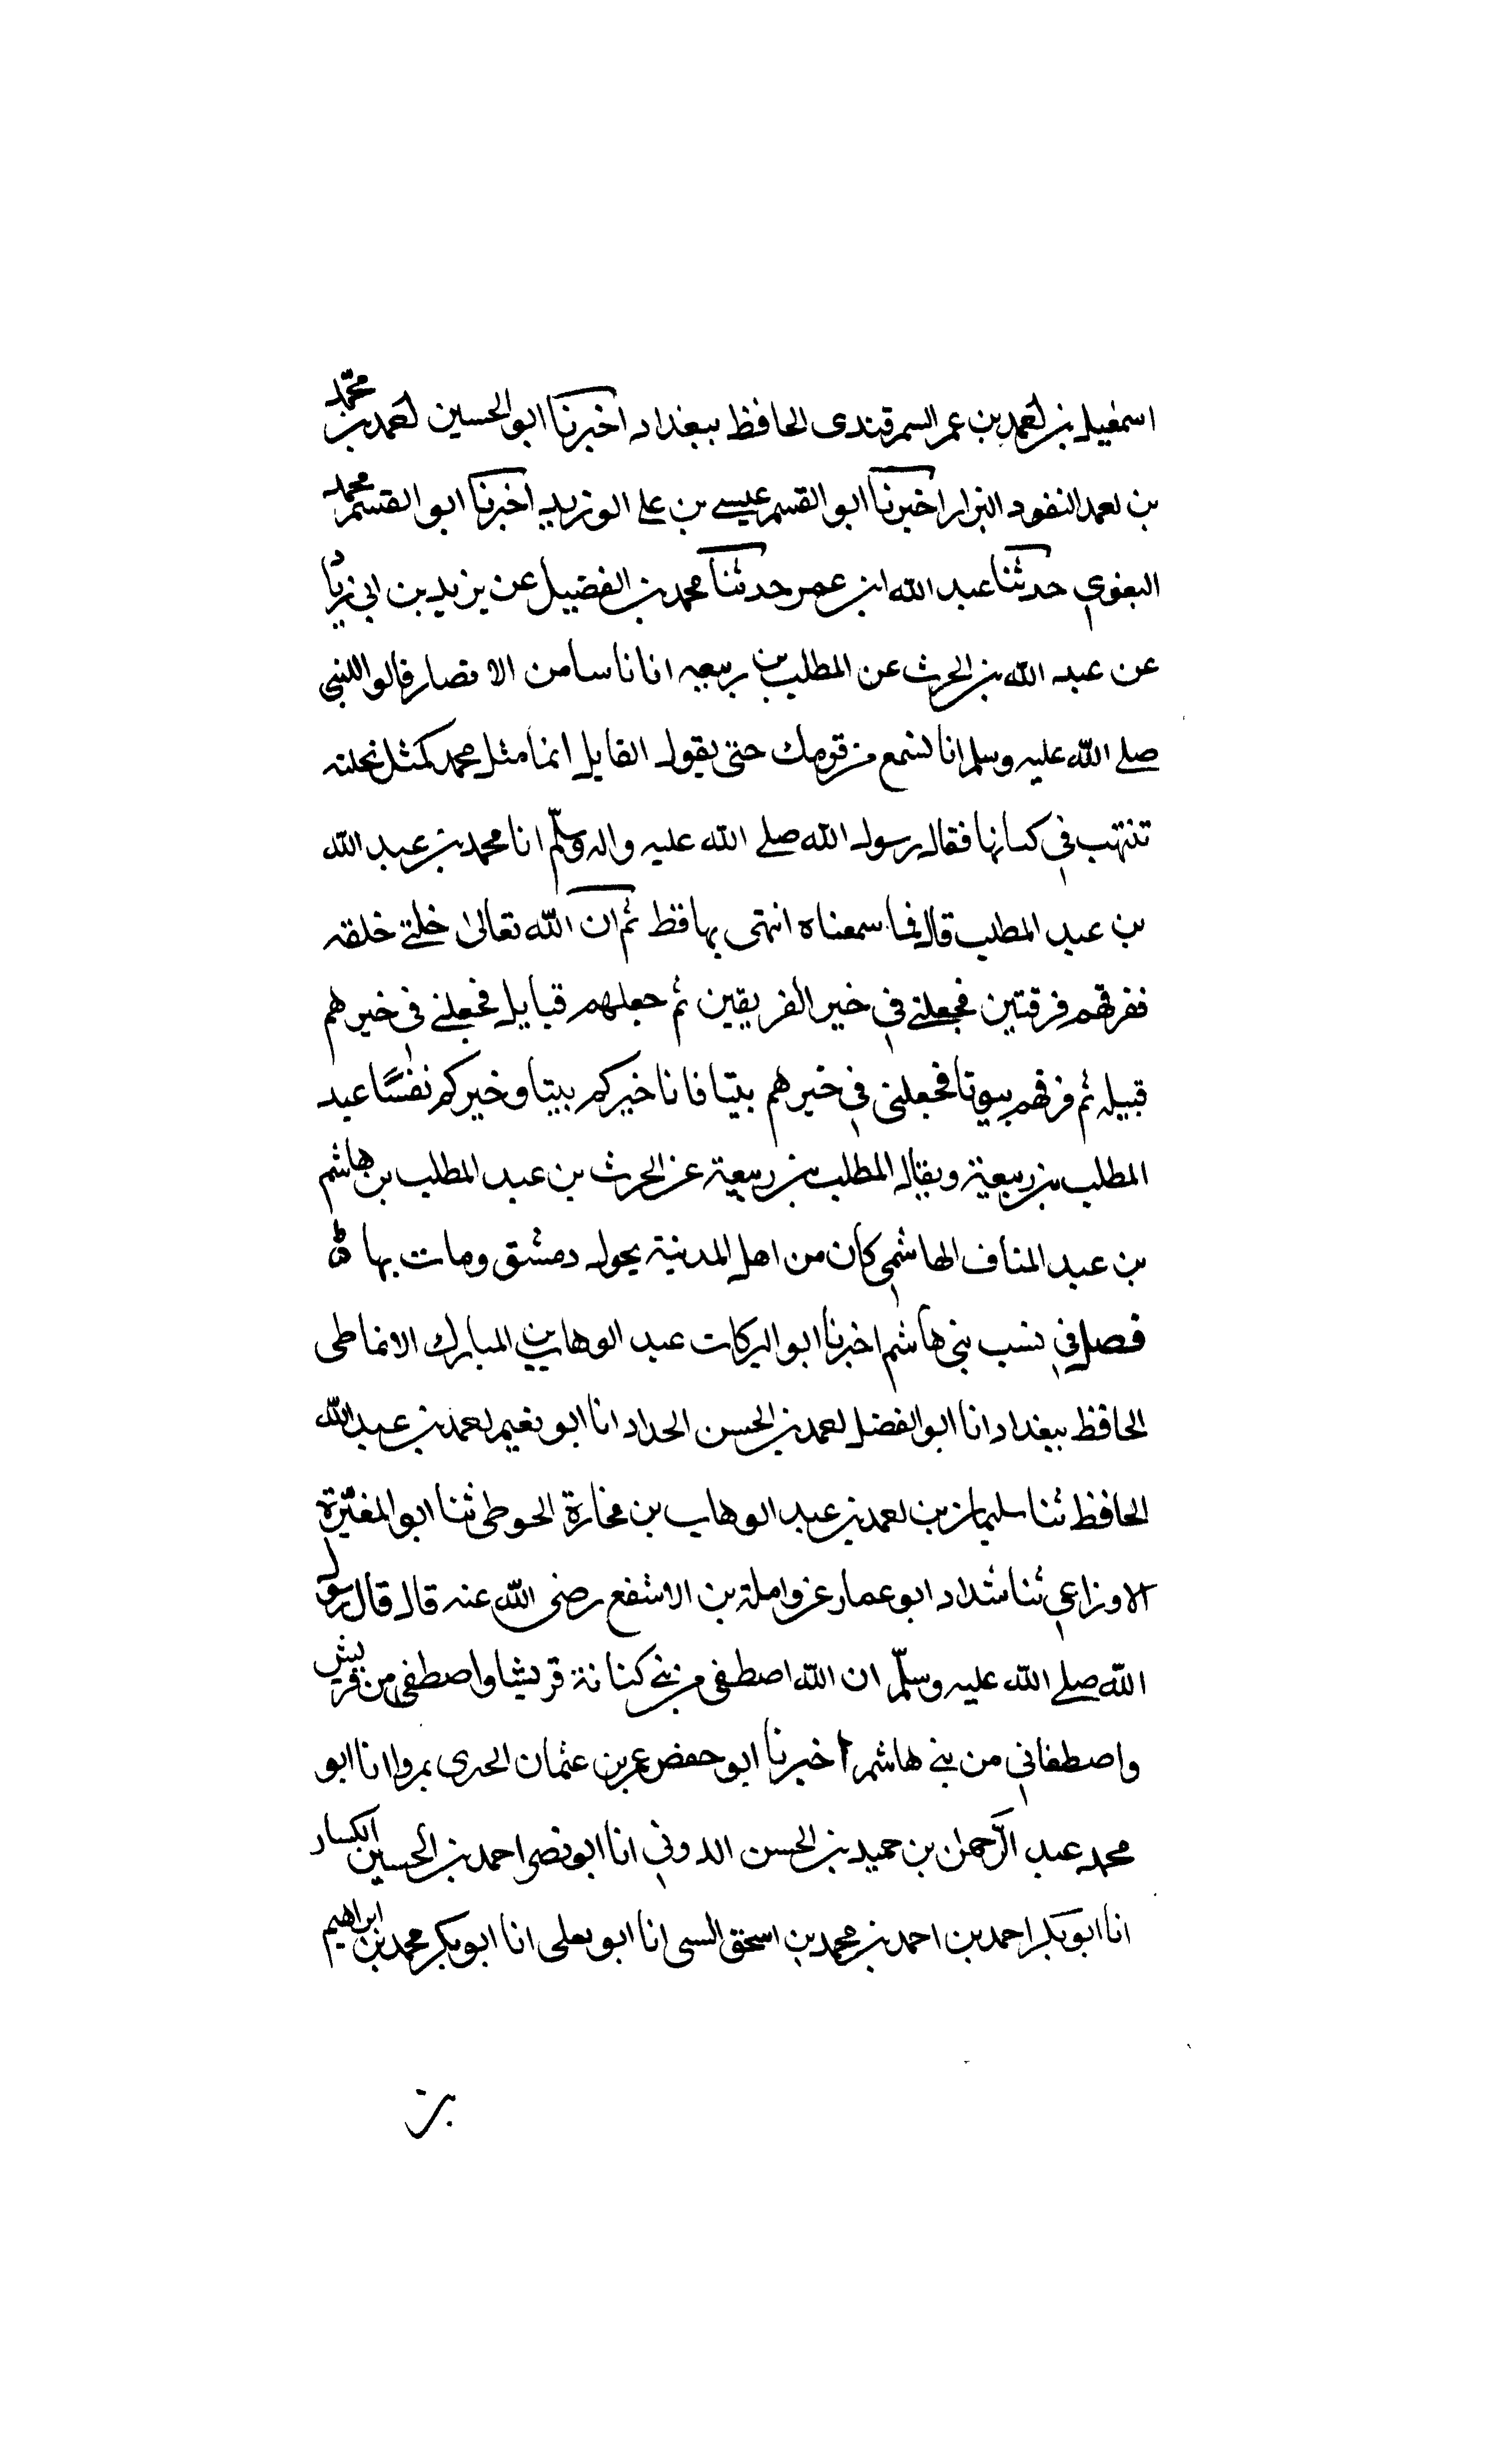 اسمعيل بن احمد بن عمر السمرقندى الحافظ ببغداد اخبرنا ابو الحسين احمد بن محمد
بن احمد النفود البزار اخبرنا ابو القسم عيسے بن على الوزير اخبرنا ابو القسم محمد
البغوى حدثنا عبد الله ابن عمر حدثنا محمد بن الفضيل عن يزيد بن ابى زياد
عن عبد الله بن الحرث عن المطلب بن ربيعه انا ناسا من الانصار قالو اللنبى
صلے الله عليه وسلم انا لنسمع من قومك حتى يقول القايل انما مثل محمد كمثل نخلته
تنتهب فى كسانها فقال رسول الله صلے الله عليه واله وسلّم انا محمد بن عبد الله
بن عبد المطلب قال فما سمعناه انتمى بها قط ثم ان الله تعالىٰ خلق خلقه
ففرقهم فرقتين فجعلنے فى خير الفريقين ثم جعلهم قبايل فجعلنے فى خيرهم
قبيله ثم فرقهم بيوتا فجعلنى فى خيرهم بيتا فانا خيركم بيتا وخيركم نفسًا عبد
المطلب بن ربيعة ويقال المطلب بن ربيعة عن الحرث بن عبد المطلب بن هاشم
بن عبد المناف الهاشمى كان من اهل المدنية يحول دمشق ومات بها
فصل فى نسب بنى هاشم اخبرنا ابو البركات عبد الوهاب بن المبارك الانماطى
الحافظ ببغداد انا ابو الفضل احمد بن الحسن الحداد انا ابو نعيم احمد بن عبد الله
الحافظ ثنا سليمان بن احمد بن عبد الوهاب بن مخارة الحوطى ثنا ابو المغيرة
الاوزاعى ثنا شداد ابو عمار عن واملة بن الاشفع رضى الله عنه قال قال رسول
الله صلے الله عليه وسلّم ان الله اصطفى من بنے كنانة قريشا واصطفى من قريش
واصطفانى من بنے هاشم اخبرنا ابو حفص عمر بن عثمان الحرى بمروا انا ابو
محمد عبد الرّحمن بن حميد بن الحسن الدونى انا ابو نصر احمد بن الحسين الكسار
انا ابو بكر احمد بن احمد بن محمد بن اسحق السى انا ابو يعلى انا ابو بكر محمد بن ابراهيم
بن